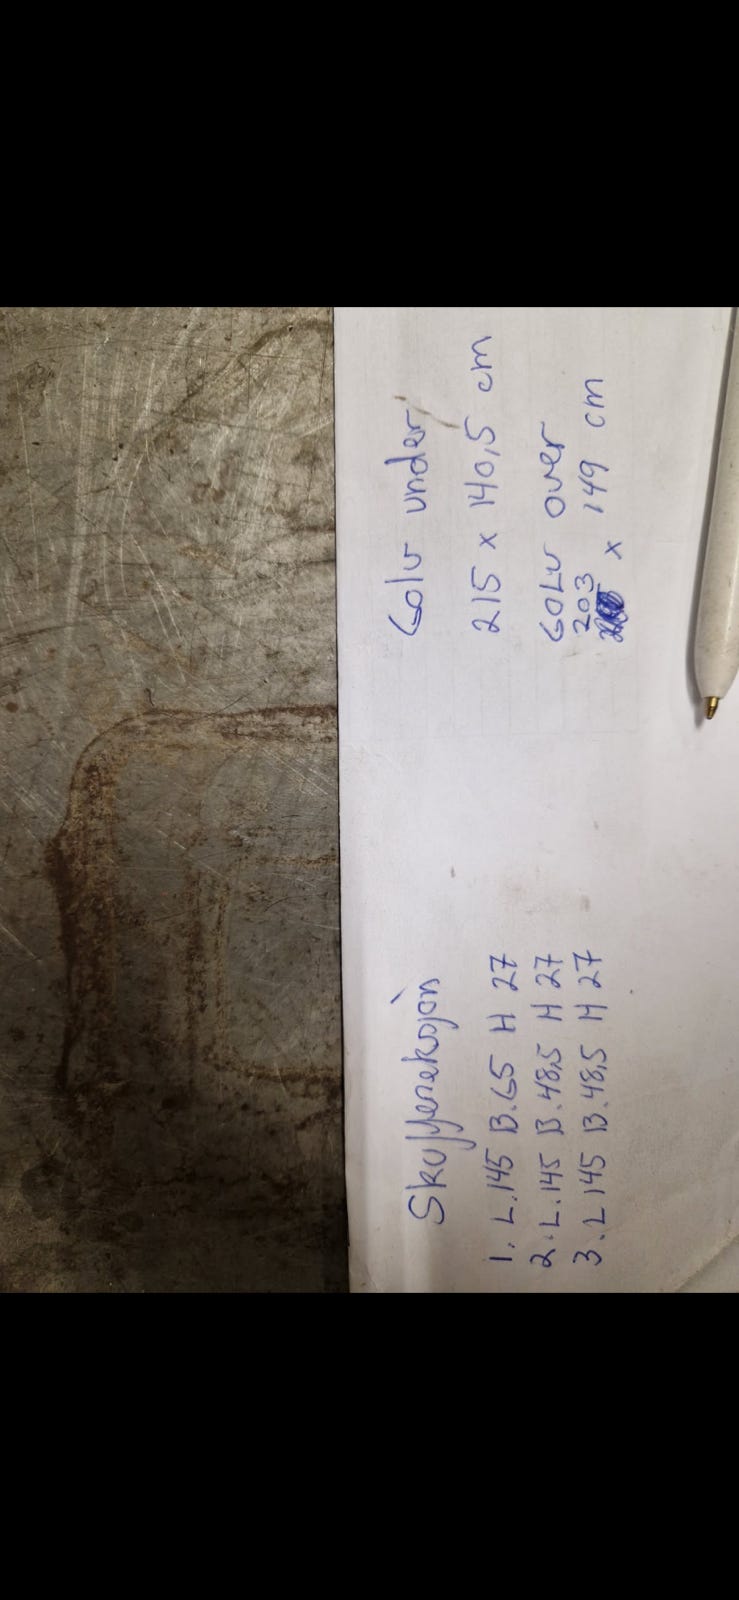 Skuffeseksjon
1. L.145 B.65 H 27
2. L.145 B.48,5 H 27
3. L 145 B.48,5 H 27
Golv under
215 x 140,5 cm
GOLV over
203 x 149 cm